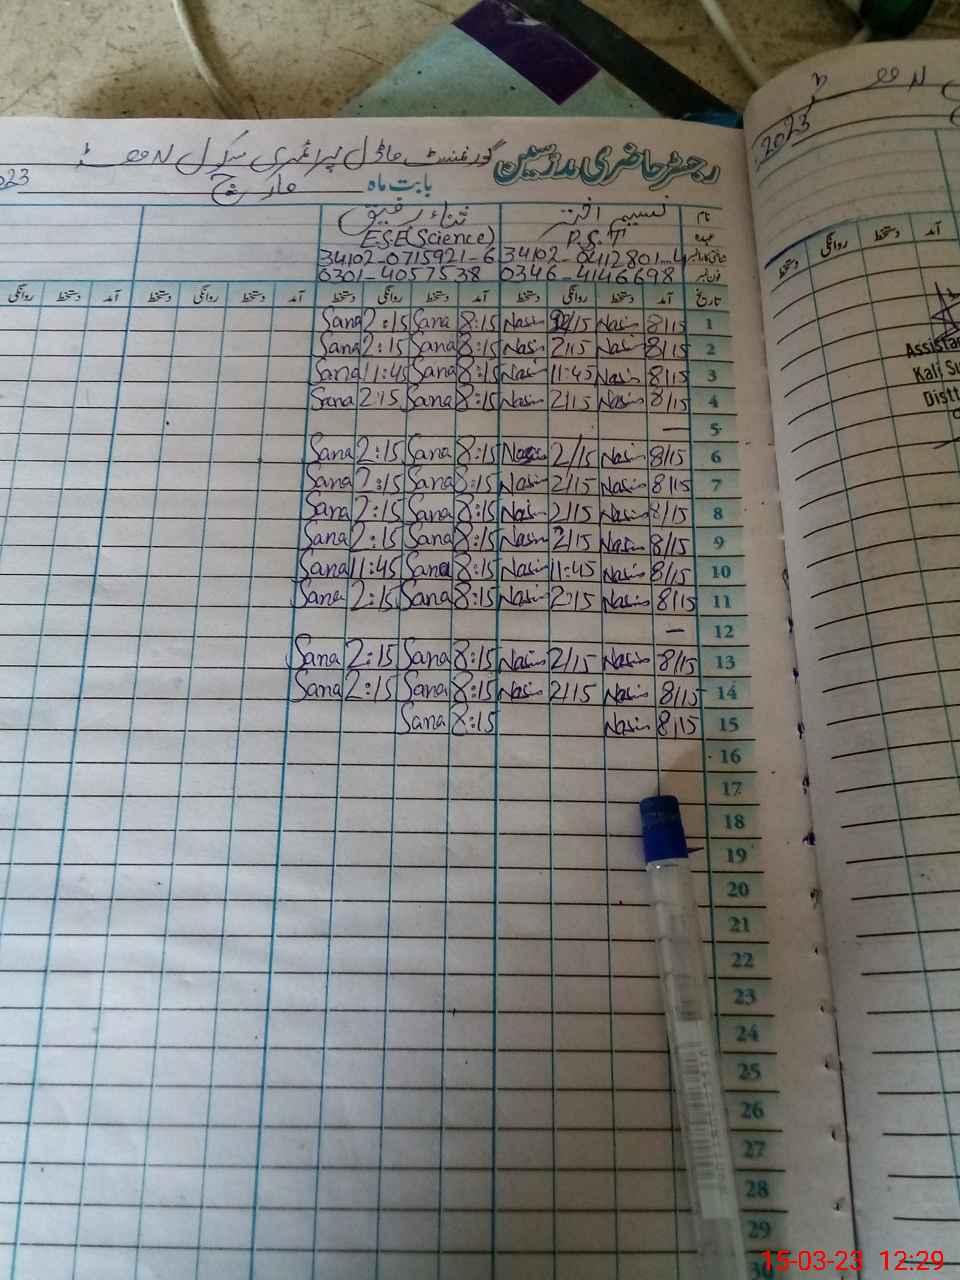 رجسٹر حاضری مدرسین گورنمنٹ ماڈل پرائمری سکول
بابت ماہ مارچ 2023
نام نسیم اختر ثناء رفیق
عہدہ P.S.T E.S.E(Science)
34102-0412801-4 34102-0715921-6
فون نمبر 0346-4146698 0301-4057538
تاریخ آمد دستخط روانگی دستخط آمد دستخط روانگی دستخط آمد دستخط روانگی دستخط آمد دستخط روانگی
1 8/15 Nasim 2/15 Nasim 8:15 Sana 2:15 Sana
2 8/15 Nasim 2/15 Nasim 8:15 Sana 2:15 Sana
3 8/15 Nasim 11:45 Nasim 8:15 Sana 11:45 Sana
4 8/15 Nasim 2/15 Nasim 8:15 Sana 2:15 Sana
5 —
6 8/15 Nasim 2/15 Nasim 8:15 Sana 2:15 Sana
7 8/15 Nasim 2/15 Nasim 8:15 Sana 2:15 Sana
8 8/15 Nasim 2/15 Nasim 8:15 Sana 2:15 Sana
9 8/15 Nasim 2/15 Nasim 8:15 Sana 2:15 Sana
10 8/15 Nasim 11:45 Nasim 8:15 Sana 11:45 Sana
11 8/15 Nasim 2:15 Nasim 8:15 Sana 2:15 Sana
12 —
13 8/15 Nasim 2/15 Nasim 8:15 Sana 2:15 Sana
14 8/15 Nasim 2/15 Nasim 8:15 Sana 2:15 Sana
15 8/15 Nasim 8:15 Sana
16
17
18
19
20
21
22
23
24
25
26
27
28
29
30
2023
آمد روانگی دستخط دستخط
Assista
Kali Su
Distt
15-03-23 12:29